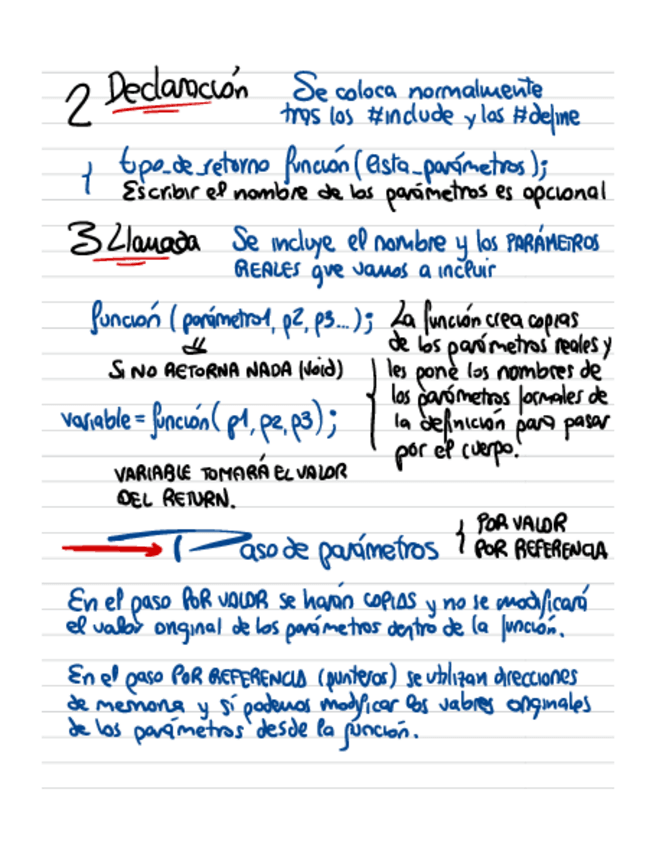 2 Declaración Se coloca normalmente
tras los #include y los #define
tipo_de_retorno función (lista_parámetros);
Escribir el nombre de los parámetros es opcional
3 Llamada Se incluye el nombre y los PARÁMETROS
REALES que vamos a incluir
función (parámetro1, p2, p3...);
SI NO RETORNA NADA (void)
variable = función (p1, p2, p3);
VARIABLE TOMARÁ EL VALOR
DEL RETURN.
La función crea copias
de los parámetros reales y
les pone los nombres de
los parámetros formales de
la definición para pasar
por el cuerpo.
Paso de parámetros
POR VALOR
POR REFERENCIA
En el paso POR VALOR se harán COPIAS y no se modificará
el valor original de los parámetros dentro de la función.
En el paso POR REFERENCIA (punteros) se utilizan direcciones
de memoria y sí podemos modificar los valores originales
de los parámetros desde la función.